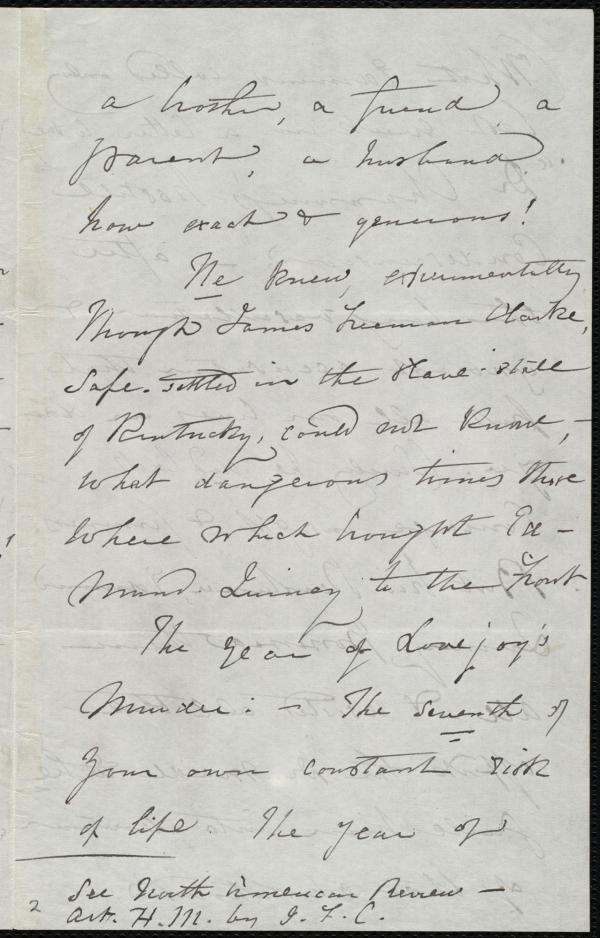 a brother, a friend, a
parent, a husband,
how exact & generous!
We knew, experimentally
Though James Freeman Clarke,
Safe-settled in the Slave-state
of Kentucky, could not know, —
what dangerous times those
where which brought Ed-
mund Quincy to the front.
The year of Lovejoy's
Murder: — The seventh of
your own constant risk
of life. The year of
2 See North American Review —
Art. H. M. by J. F. C.